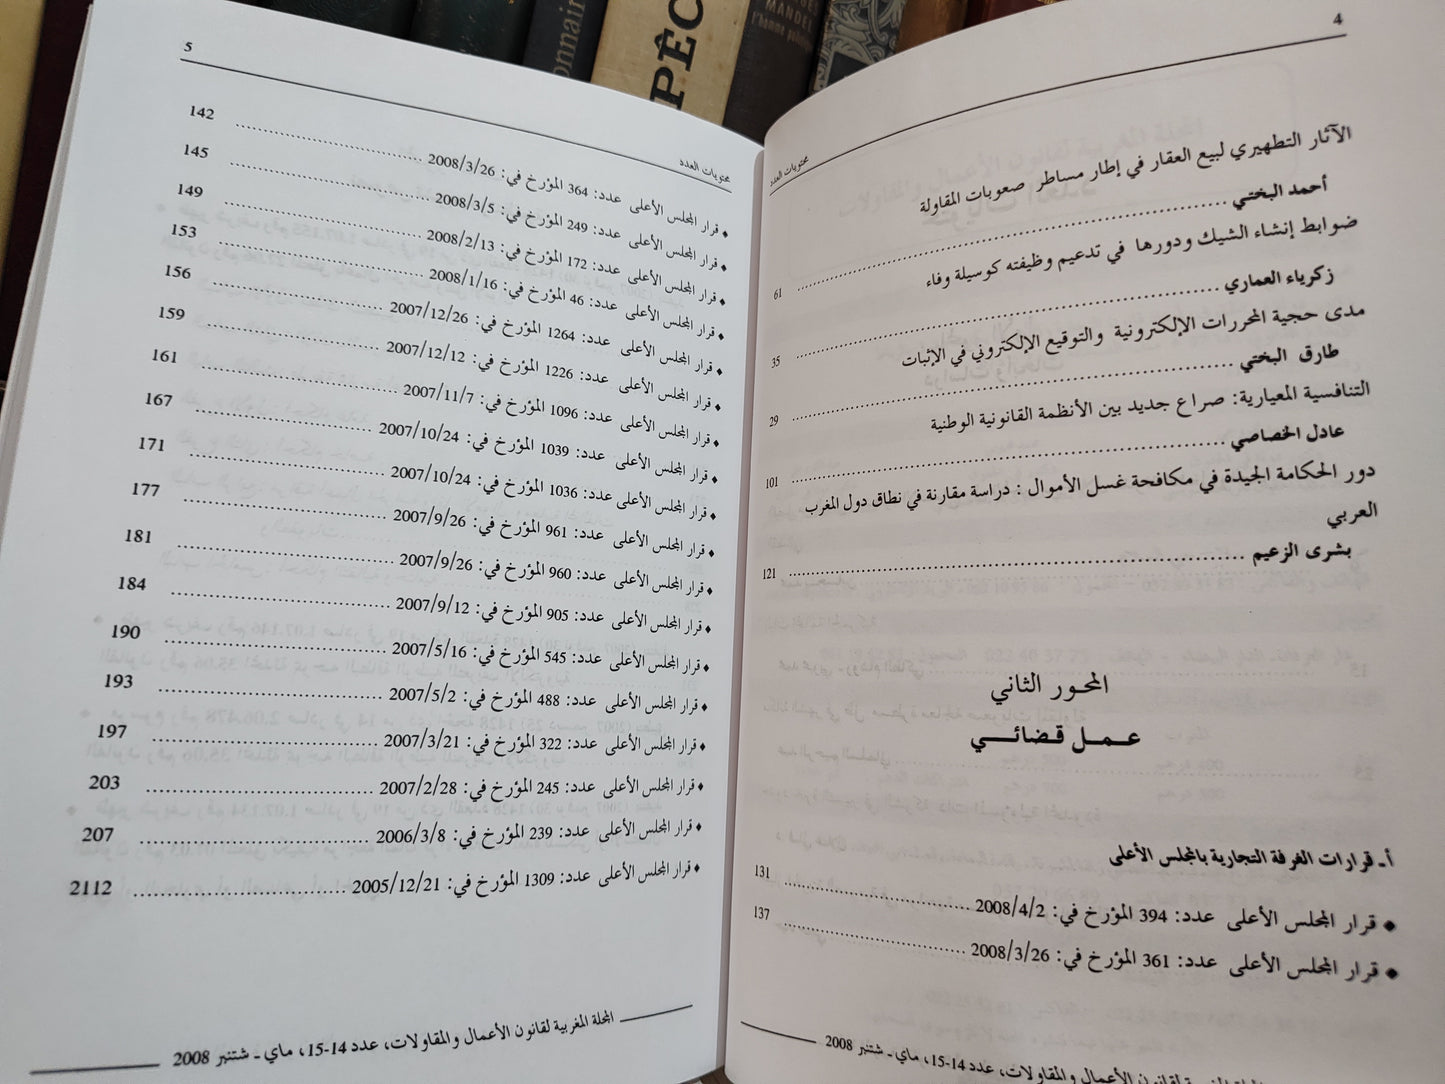 4
محتويات العدد
الآثار التطهيري لبيع العقار في إطار مساطر صعوبات المقاولة
أحمد البختي ........ 61
ضوابط إنشاء الشيك ودورها في تدعيم وظيفته كوسيلة وفاء
زكرياء العماري ........ 35
مدى حجية المحررات الإلكترونية والتوقيع الإلكتروني في الإثبات
طارق البختي ........ 29
التنافسية المعيارية: صراع جديد بين الأنظمة القانونية الوطنية
عادل الخصاصي ........ 101
دور الحكامة الجيدة في مكافحة غسل الأموال : دراسة مقارنة في نطاق دول المغرب
العربي
بشرى الزعيم ........ 121
المحور الثاني
عمل قضائي
أ- قرارات الغرفة التجارية بالمجلس الأعلى
♦ قرار المجلس الأعلى عدد: 394 المؤرخ في: 2008/4/2 ........ 131
♦ قرار المجلس الأعلى عدد: 361 المؤرخ في: 2008/3/26 ........ 137
لقانون الأعمال والمقاولات، عدد 14-15، ماي - شتنبر 2008
5
محتويات العدد
♦ قرار المجلس الأعلى عدد: 364 المؤرخ في: 2008/3/26 ........ 142
♦ قرار المجلس الأعلى عدد: 249 المؤرخ في: 2008/3/5 ........ 145
♦ قرار المجلس الأعلى عدد: 172 المؤرخ في: 2008/2/13 ........ 149
♦ قرار المجلس الأعلى عدد: 46 المؤرخ في: 2008/1/16 ........ 153
♦ قرار المجلس الأعلى عدد: 1264 المؤرخ في: 2007/12/26 ........ 156
♦ قرار المجلس الأعلى عدد: 1226 المؤرخ في: 2007/12/12 ........ 159
♦ قرار المجلس الأعلى عدد: 1096 المؤرخ في: 2007/11/7 ........ 161
♦ قرار المجلس الأعلى عدد: 1039 المؤرخ في: 2007/10/24 ........ 167
♦ قرار المجلس الأعلى عدد: 1036 المؤرخ في: 2007/10/24 ........ 171
♦ قرار المجلس الأعلى عدد: 961 المؤرخ في: 2007/9/26 ........ 177
♦ قرار المجلس الأعلى عدد: 960 المؤرخ في: 2007/9/26 ........ 181
♦ قرار المجلس الأعلى عدد: 905 المؤرخ في: 2007/9/12 ........ 184
♦ قرار المجلس الأعلى عدد: 545 المؤرخ في: 2007/5/16 ........ 190
♦ قرار المجلس الأعلى عدد: 488 المؤرخ في: 2007/5/2 ........ 193
♦ قرار المجلس الأعلى عدد: 322 المؤرخ في: 2007/3/21 ........ 197
♦ قرار المجلس الأعلى عدد: 245 المؤرخ في: 2007/2/28 ........ 203
♦ قرار المجلس الأعلى عدد: 239 المؤرخ في: 2006/3/8 ........ 207
♦ قرار المجلس الأعلى عدد: 1309 المؤرخ في: 2005/12/21 ........ 2112
المجلة المغربية لقانون الأعمال والمقاولات، عدد 14-15، ماي - شتنبر 2008
onnair
PÊC
MANDEL
l'homme